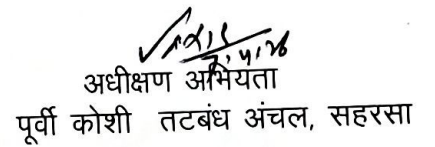 अधीक्षण अभियता
पूर्वी कोशी तटबंध अंचल, सहरसा